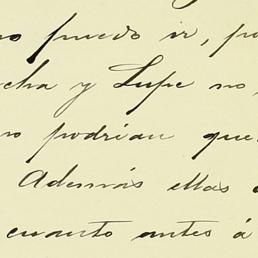 no puedo ir, po
cha y Lupe no,
no podrian que
Además ellas
cuanto antes á